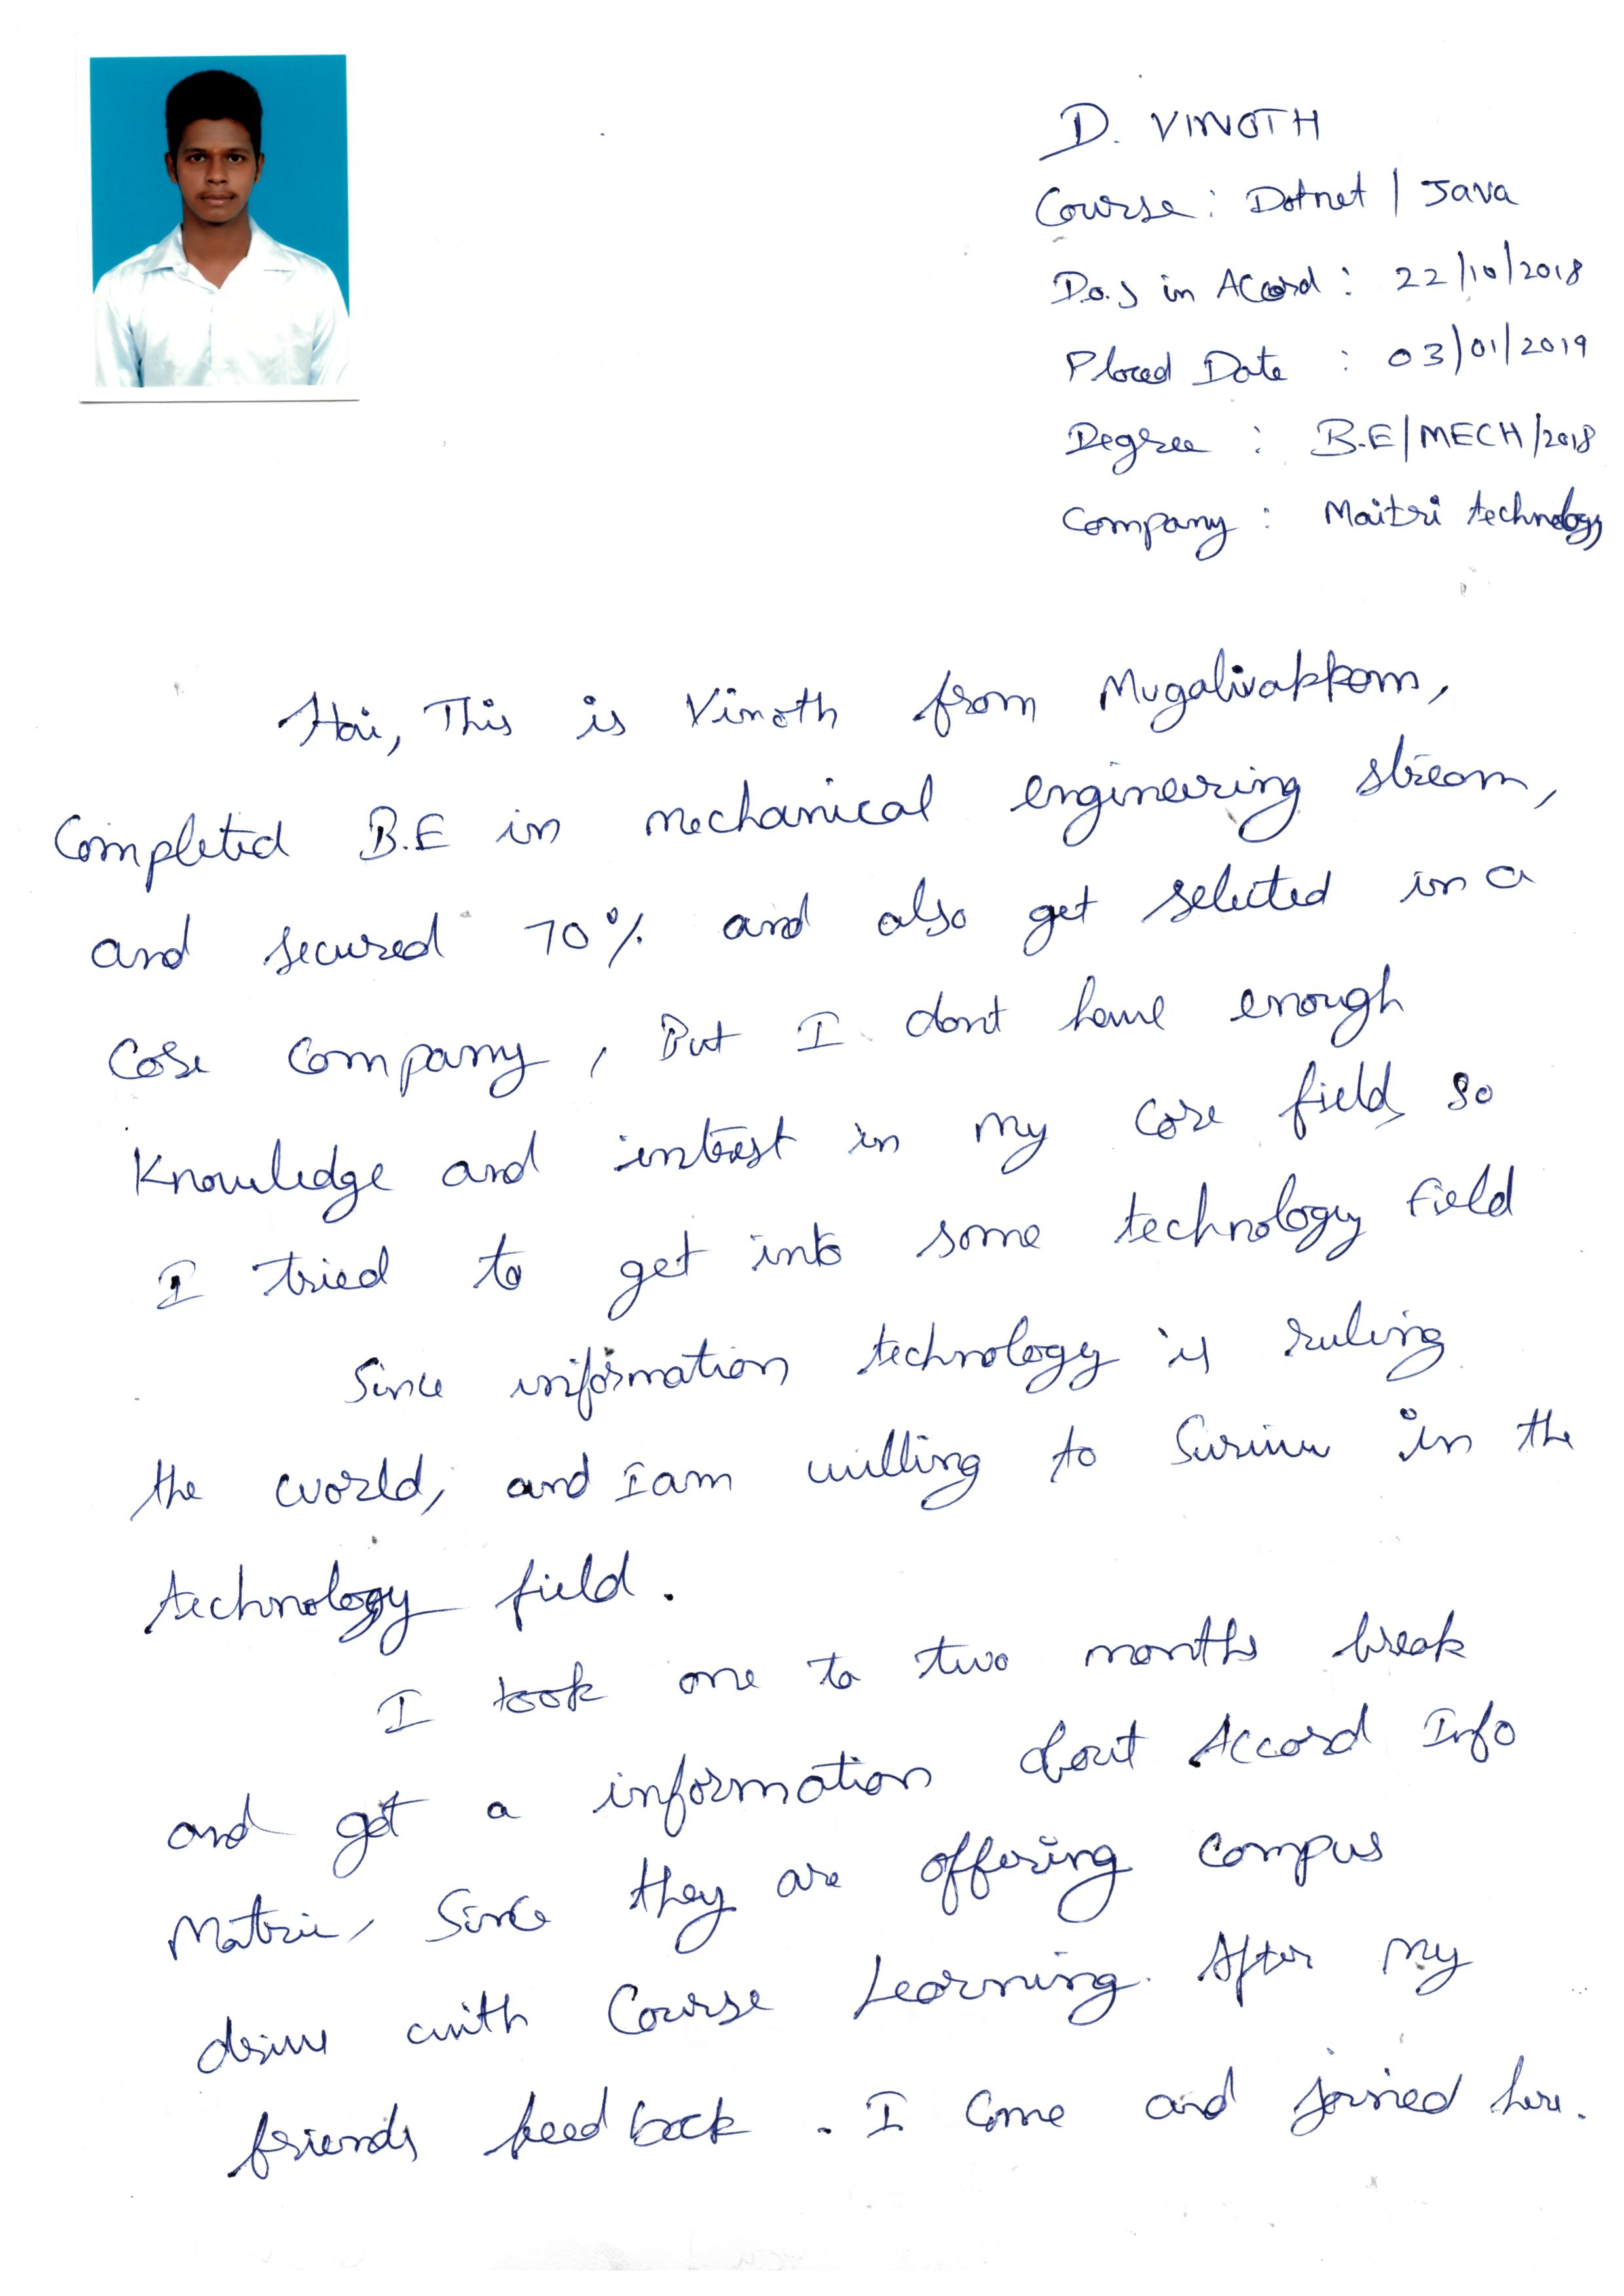 D. VINOTH
Course : Dotnet | Java
D.o.J in Accord : 22/10/2018
Placed Date : 03/01/2019
Degree : B.E/MECH/2018
Company : Maitri technology
Hai, This is Vinoth from Mugalivakkam,
Completed B.E in mechanical engineering stream,
and secured 70% and also get selected in a
Core Company, But I dont have enough
Knowledge and interest in my core field, so
I tried to get into some technology field
Since information technology is ruling
the world, and I am willing to Survive in the
technology field.
I took one to two months break
and got a information about Accord Info
Matrix, Since they are offering campus
drive with Course Learning. After my
friends feedback. I come and joined here.